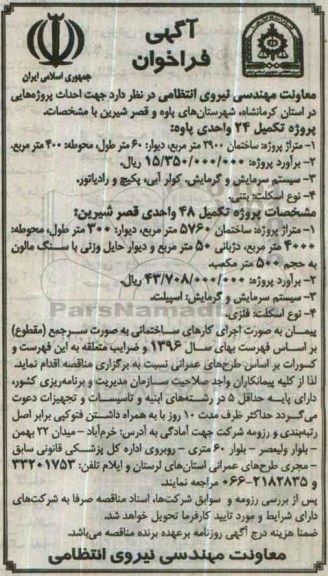 آگهی
فراخوان
جمهوری اسلامی ایران
معاونت مهندسی نیروی انتظامی در نظر دارد جهت احداث پروژه‌هایی
در استان کرمانشاه، شهرستان‌های پاوه و قصر شیرین با مشخصات.
پروژه تکمیل ۲۴ واحدی پاوه:
۱- متراژ پروژه: ساختمان ۲۹۰۰ متر مربع، دیوار: ۶۰ متر طول، محوطه: ۴۰۰ متر مربع.
۲- برآورد پروژه: ۱۵/۳۵۰/۰۰۰/۰۰۰ ریال.
۳- سیستم سرمایش و گرمایش. کولر آبی، پکیچ و رادیاتور.
۴- نوع اسکلت: بتنی.
مشخصات پروژه تکمیل ۴۸ واحدی قصر شیرین:
۱- متراژ پروژه: ساختمان ۵۷۶۰ متر مربع، دیوار: ۳۰۰ متر طول، محوطه:
۴۰۰۰ متر مربع، دژبانی ۵۰ متر مربع و دیوار حایل وزنی با سنگ مالون
به حجم ۵۰۰ متر مکعب.
۲- برآورد پروژه: ۴۳/۷۰۸/۰۰۰/۰۰۰ ریال.
۳- سیستم سرمایش و گرمایش: اسپیلت.
۴- نوع اسکلت: فلزی.
پیمان به صورت اجرای کارهای ساختمانی به صورت سرجمع (مقطوع)
بر اساس فهرست بهای سال ۱۳۹۶ و ضرایب متعلقه به این فهرست و
کسورات بر اساس طرح‌های عمرانی نسبت به برگزاری مناقصه اقدام نماید.
لذا از کلیه پیمانکاران واجد صلاحیت سازمان مدیریت و برنامه‌ریزی کشور،
دارای پایه حداقل ۵ در رشته‌های ابنیه و تاسیسات و تجهیزات دعوت
می‌گردد حداکثر ظرف مدت ۱۰ روز با به همراه داشتن فتوکپی برابر اصل
رتبه‌بندی و رزومه شرکت جهت آمادگی به آدرس: خرم‌آباد - میدان ۲۲ بهمن
- بلوار ولیعصر - بلوار ۶۰ متری - روبروی اداره کل پزشکی قانونی سابق
- مجری طرح‌های عمرانی استان‌های لرستان و ایلام تلفن: ۳۳۲۰۱۷۵۳
و ۲۱۸۲۸۳۵-۰۶۶ مراجعه نمایند.
پس از بررسی رزومه و سوابق شرکت‌ها، اسناد مناقصه صرفا به شرکت‌های
دارای شرایط و مورد تایید کارفرما تحویل خواهد شد.
ضمنا هزینه درج آگهی روزنامه برعهده برنده مناقصه می‌باشد.
معاونت مهندسی نیروی انتظامی